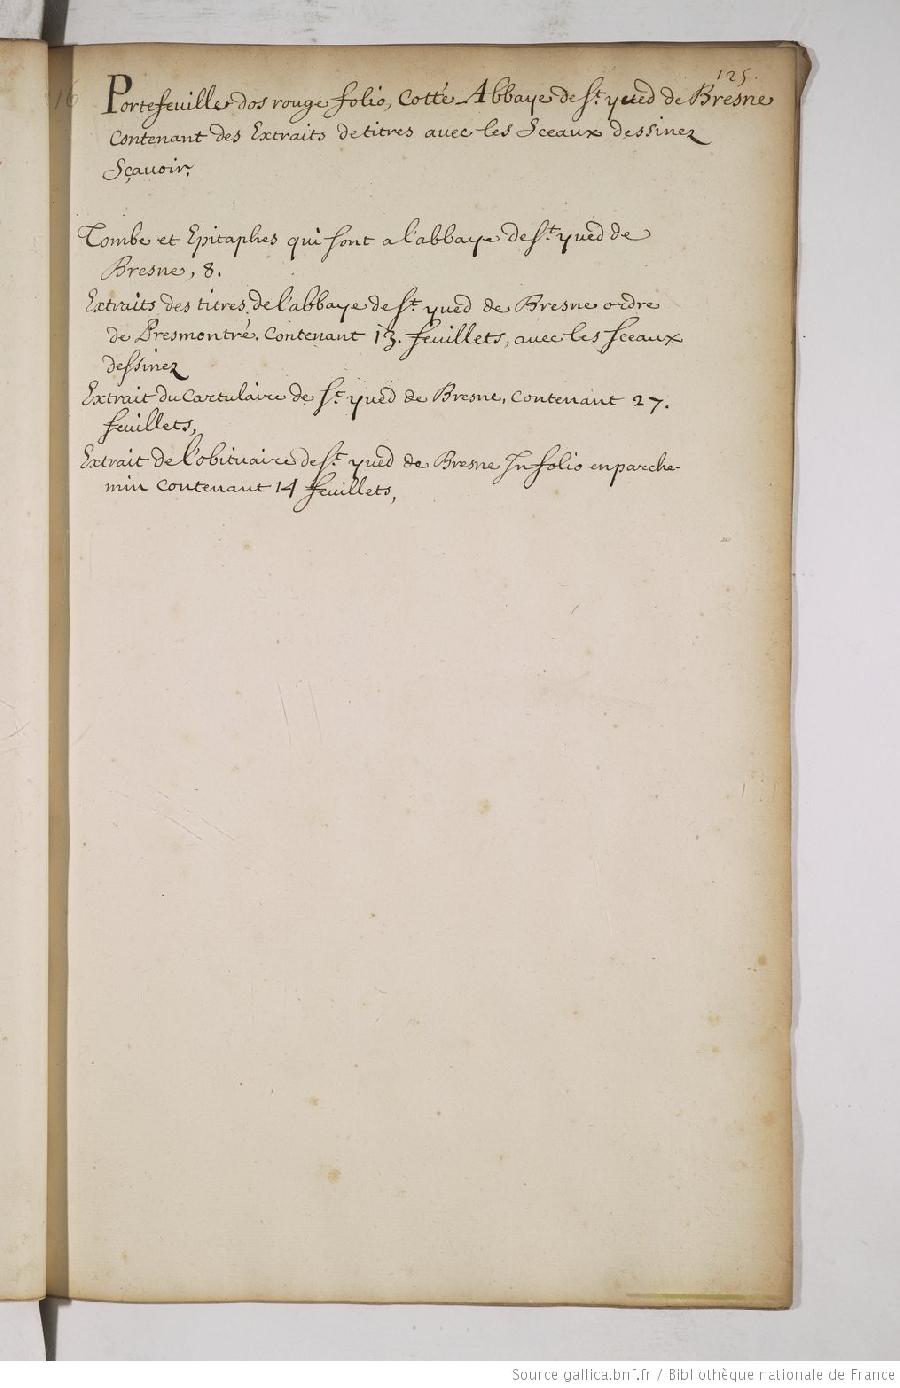 125.
16
Portefeuille dos rouge folio, Cotté Abbaye de St. yued de Bresne
Contenant des Extraits de titres avec les Sceaux dessinez
Sçavoir,
Tombe et Epitaphes qui sont a l'abbaye de St. yued de
Bresne, 8.
Extraits des titres de l'abbaye de St. yued de Bresne ordre
de Presmontré. Contenant 13. feuillets, avec les sceaux
dessinez
Extrait du Cartulaire de St. yued de Bresne, Contenant 27.
feuillets,
Extrait de l'obituaire de St. yued de Bresne In folio en parche-
min Contenant 14 feuillets,
Source gallica.bnf.fr / Bibliothèque nationale de France